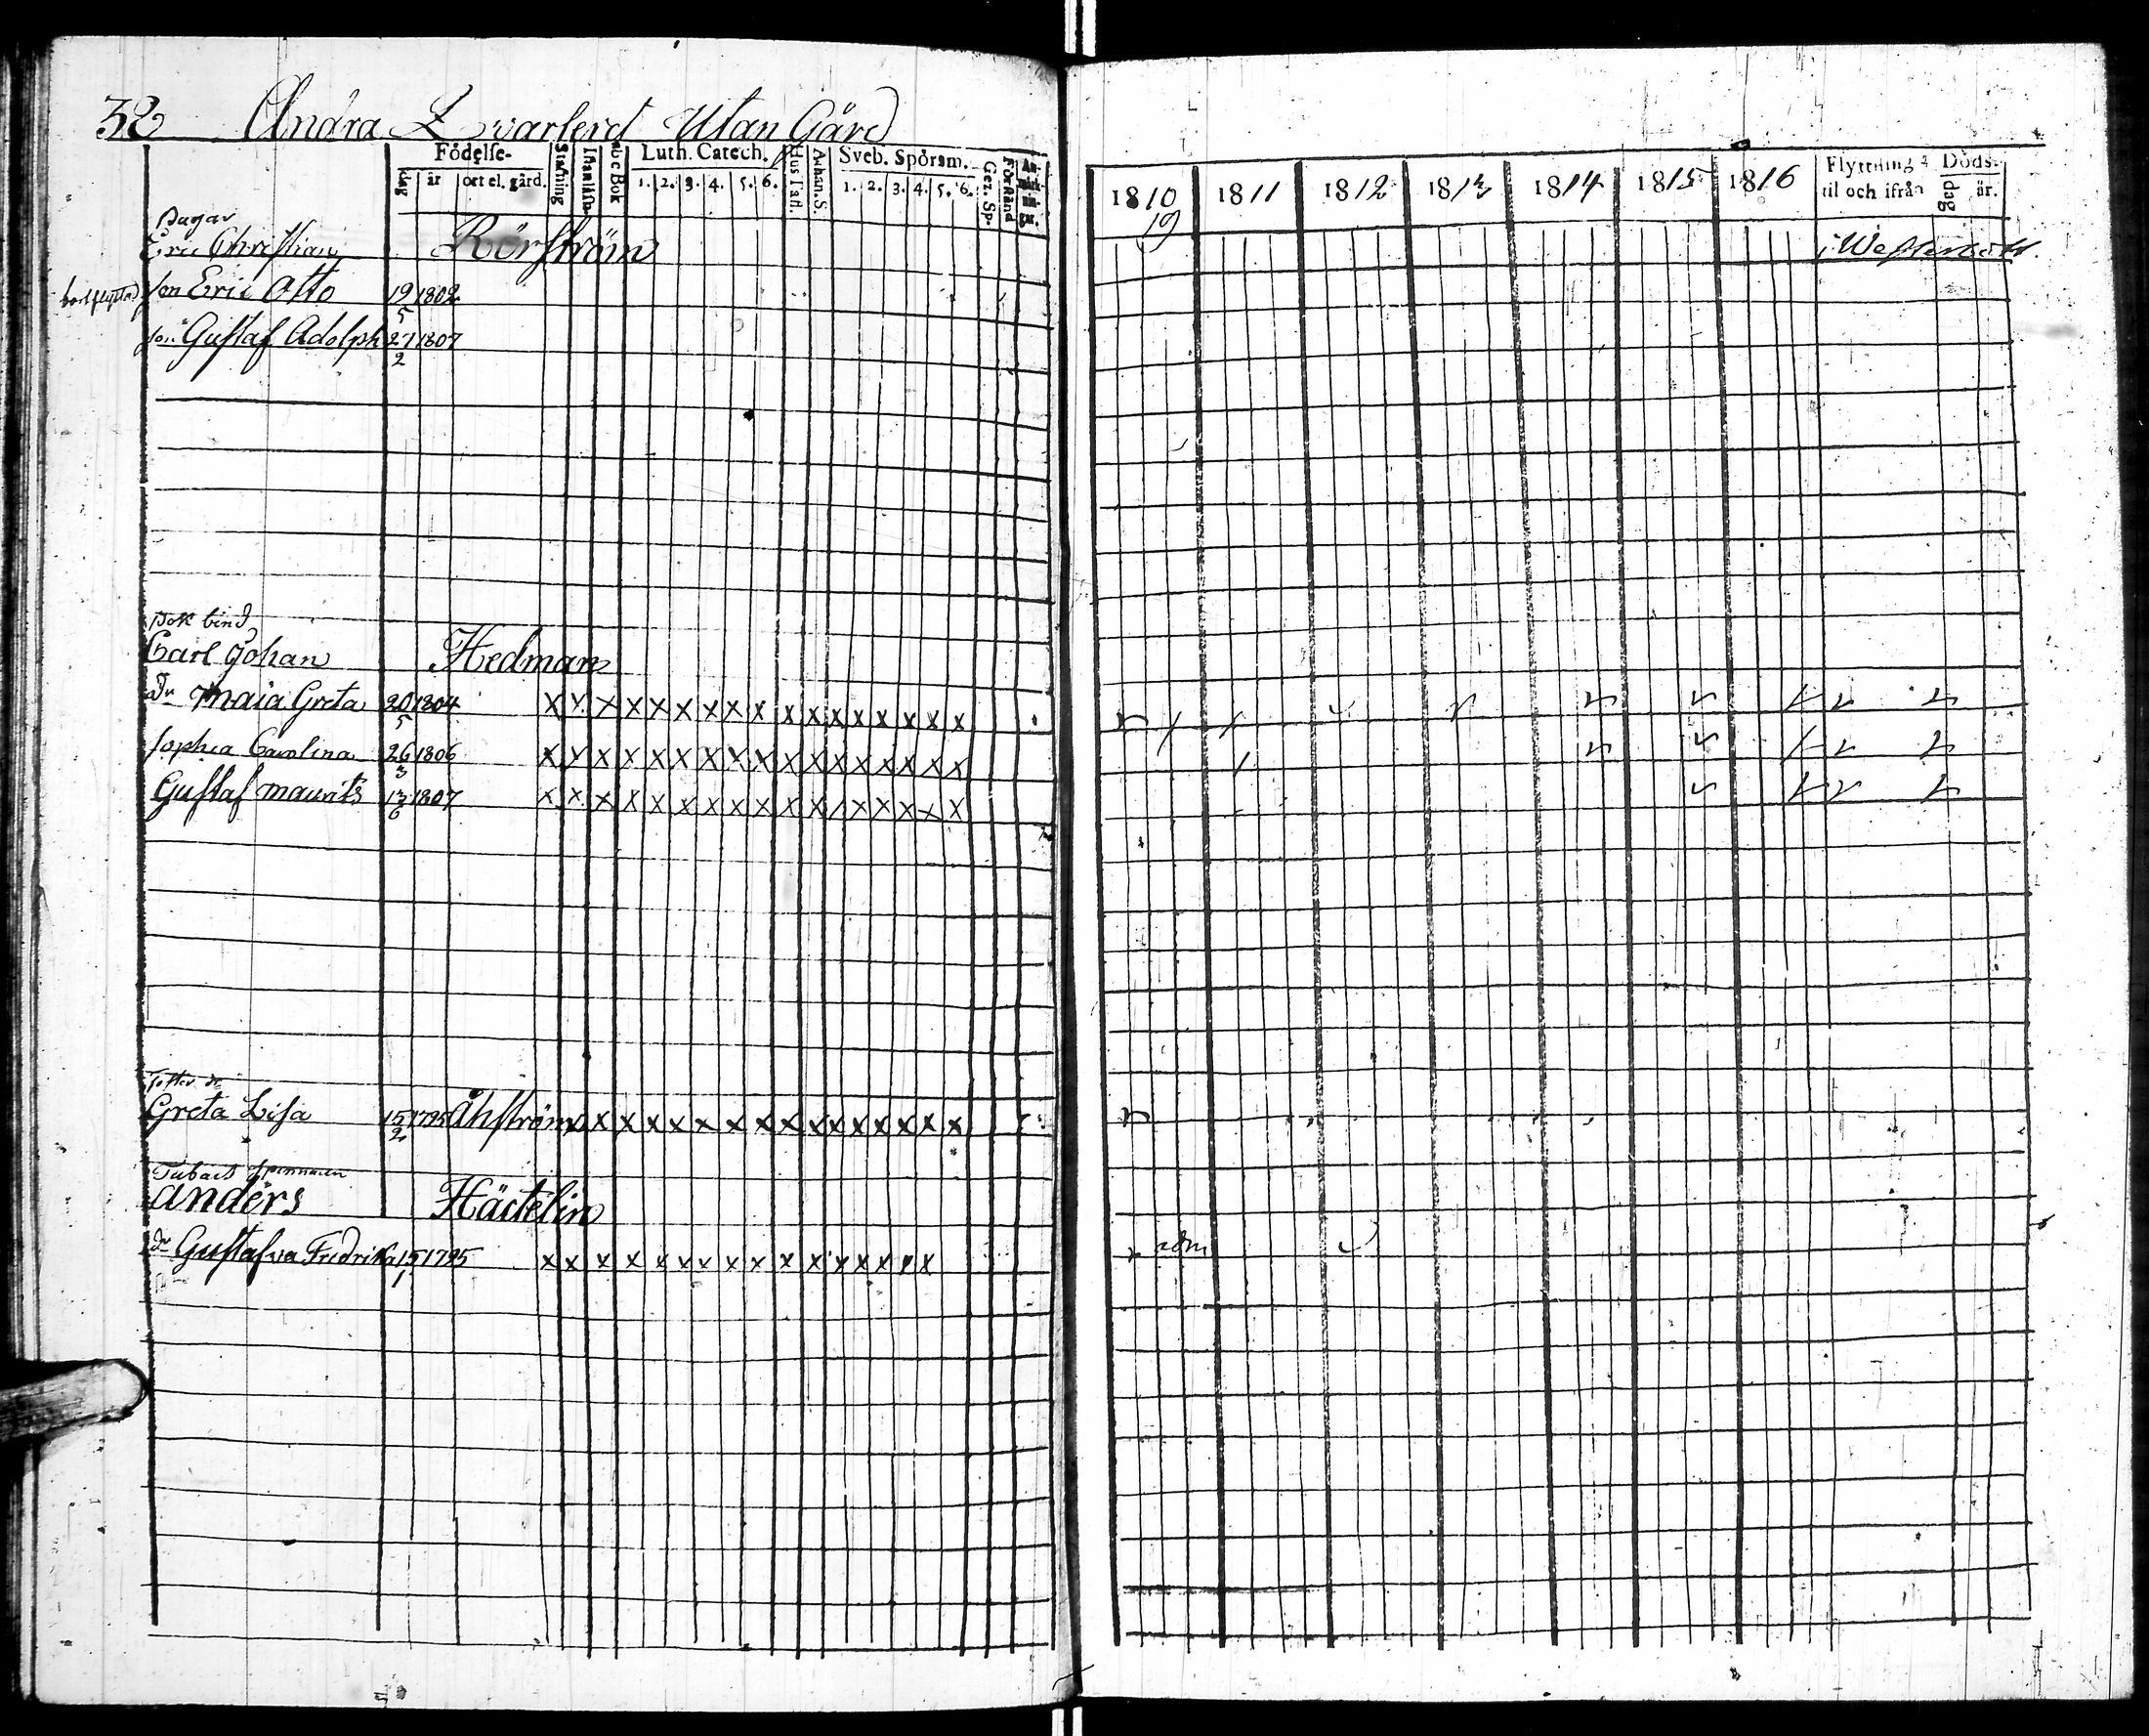 32 Andra Qvarteret Utan Gård
Födelse- Stafning Luth. Catech. Hus Tafl. Athan. S. Sveb. Spörsm. Gez. Sp. Förstånd
dag år ort el. gård. abc Bok 1. 2. 3. 4. 5. 6. 1. 2. 3. 4. 5. 6.
1810 1811 1812 1813 1814 1815 1816 Flyttning til och ifrån Döds- dag år.
19
Bagar
Eric Christian Rörström i Westerbott.
bortflyttad Son Eric Otto 19/5 1802
son Gustaf Adolph 27/2 1807
Bok bind
Carl Johan Hedman
Dr Maia Greta 20/5 1804 x x x x x x x x x x x x x x x x x
Sophia Carolina 26/3 1806 x x x x x x x x x x x x x x x x x
Gustaf Maurits 13/6 1807 x x x x x x x x x x x / x x x x x
Foster dr
Greta Lisa 15/2 1795 Åhström x x x x x x x x x x x x x x x x
Tobaks spinnaren
Anders Häctelin
dr Gustafva Fredrika 15/1 1795 x x x x x x x x x x x x x x x x adm